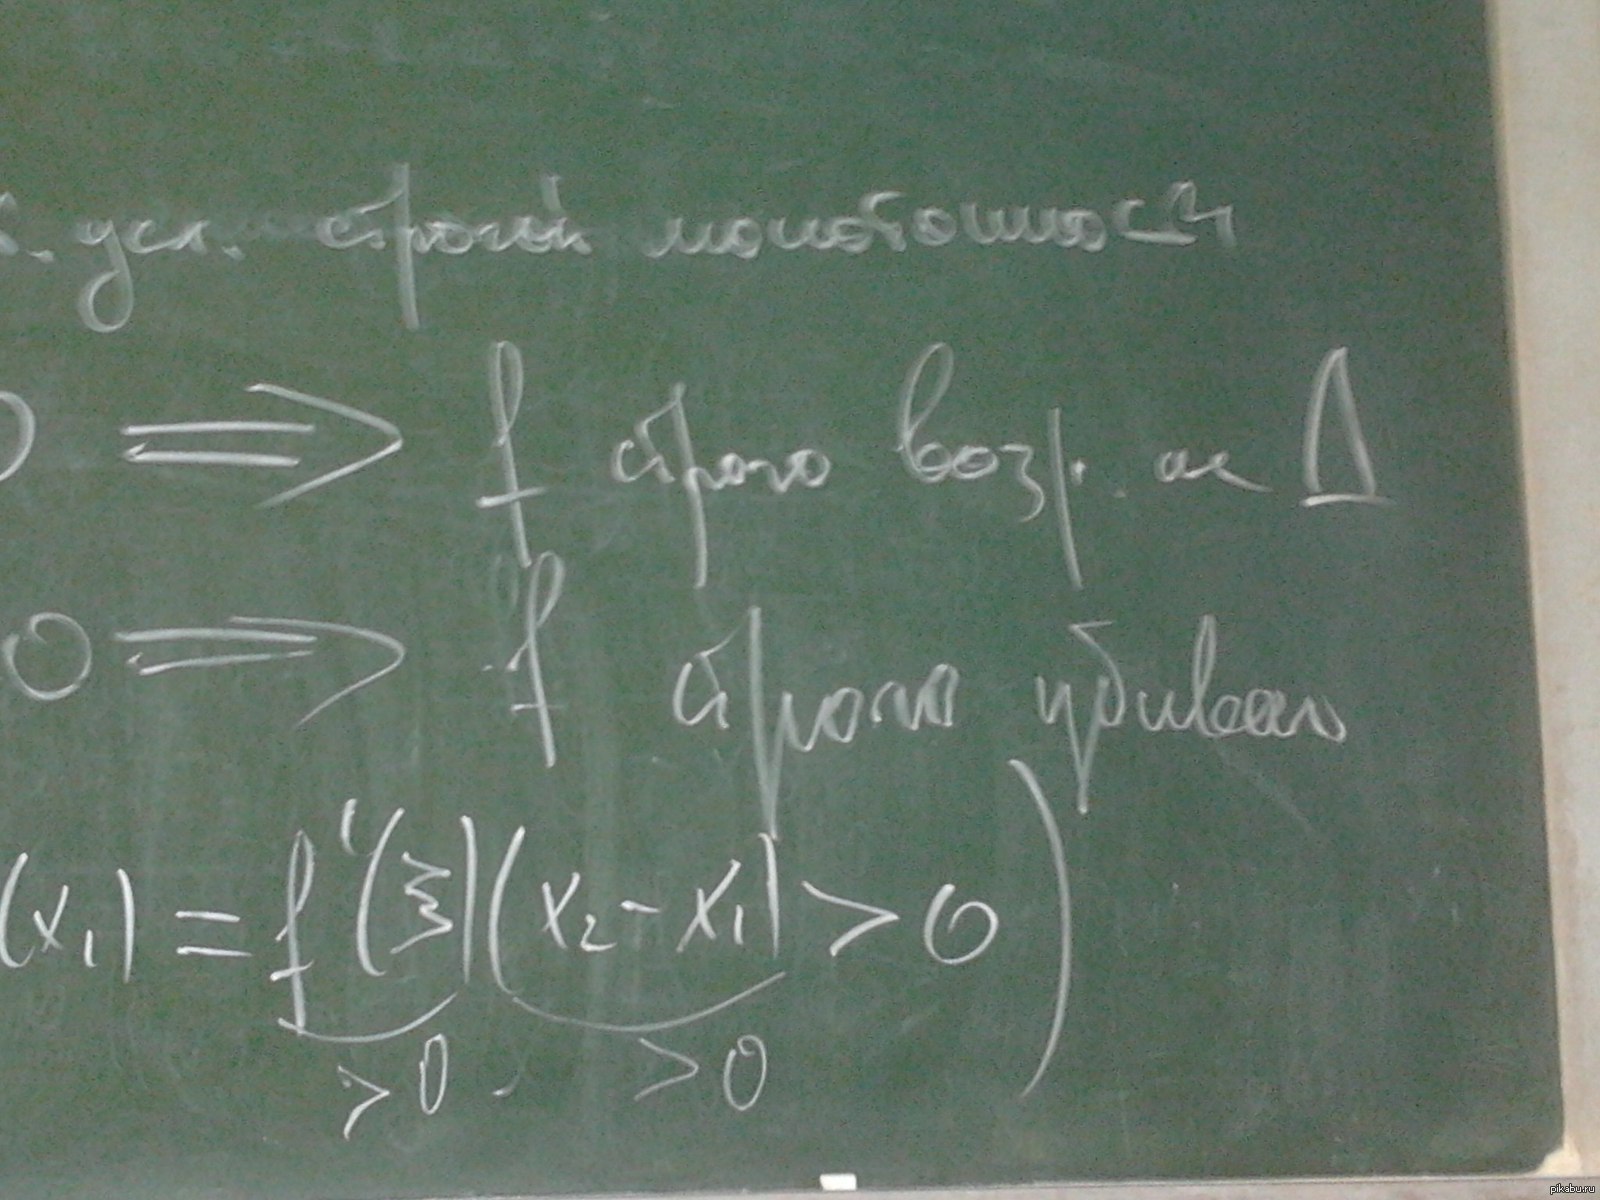 . усл. строгой монотонности
0 ⟹ f строго возр. на Δ
0 ⟹ f строго убывает
(x₁) = f'(ξ)(x₂ - x₁) > 0 )
> 0 . > 0
pikabu.ru